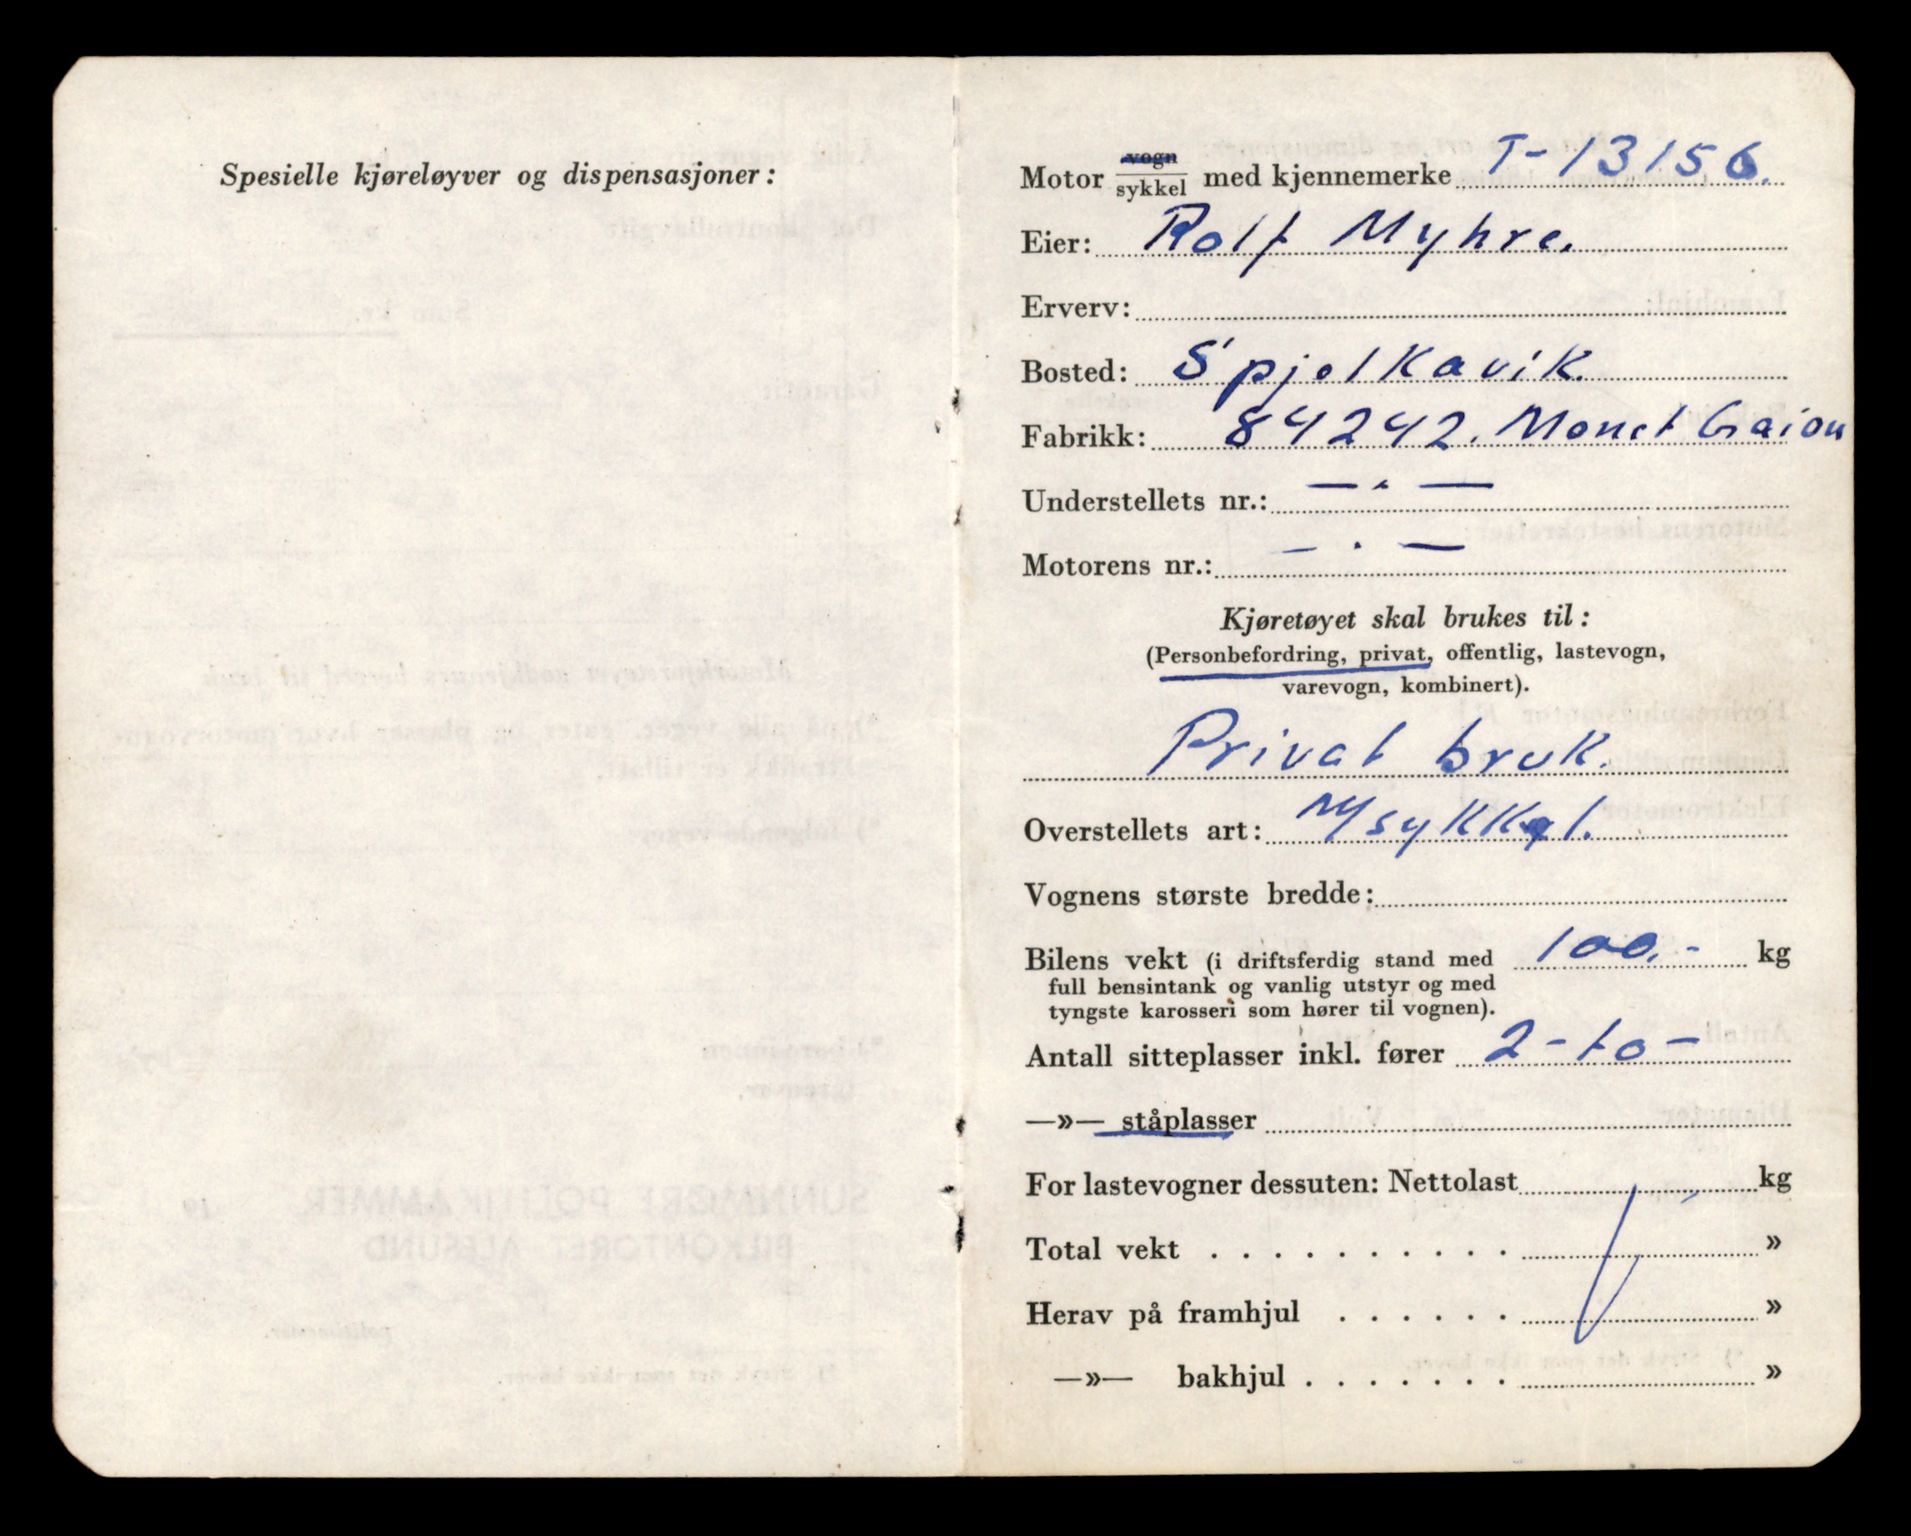 Spesielle kjøreløyver og dispensasjoner:
Motor vogn/sykkel med kjennemerke T-13156.
Eier: Rolf Myhre.
Erverv:
Bosted: Spjelkavik.
Fabrikk: 84242. Monet Gaion
Understellets nr.: — . —
Motorens nr.: — . —
Kjøretøyet skal brukes til:
(Personbefordring, privat, offentlig, lastevogn,
varevogn, kombinert).
Privat bruk.
Overstellets art: M/sykkel.
Vognens største bredde:
Bilens vekt (i driftsferdig stand med 100.- kg
full bensintank og vanlig utstyr og med
tyngste karosseri som hører til vognen).
Antall sitteplasser inkl. fører 2 - to -
—»— ståplasser
For lastevogner dessuten: Nettolast kg
Total vekt . . . . . . . . . . »
Herav på framhjul . . . . . . »
—»— bakhjul . . . . . . . »